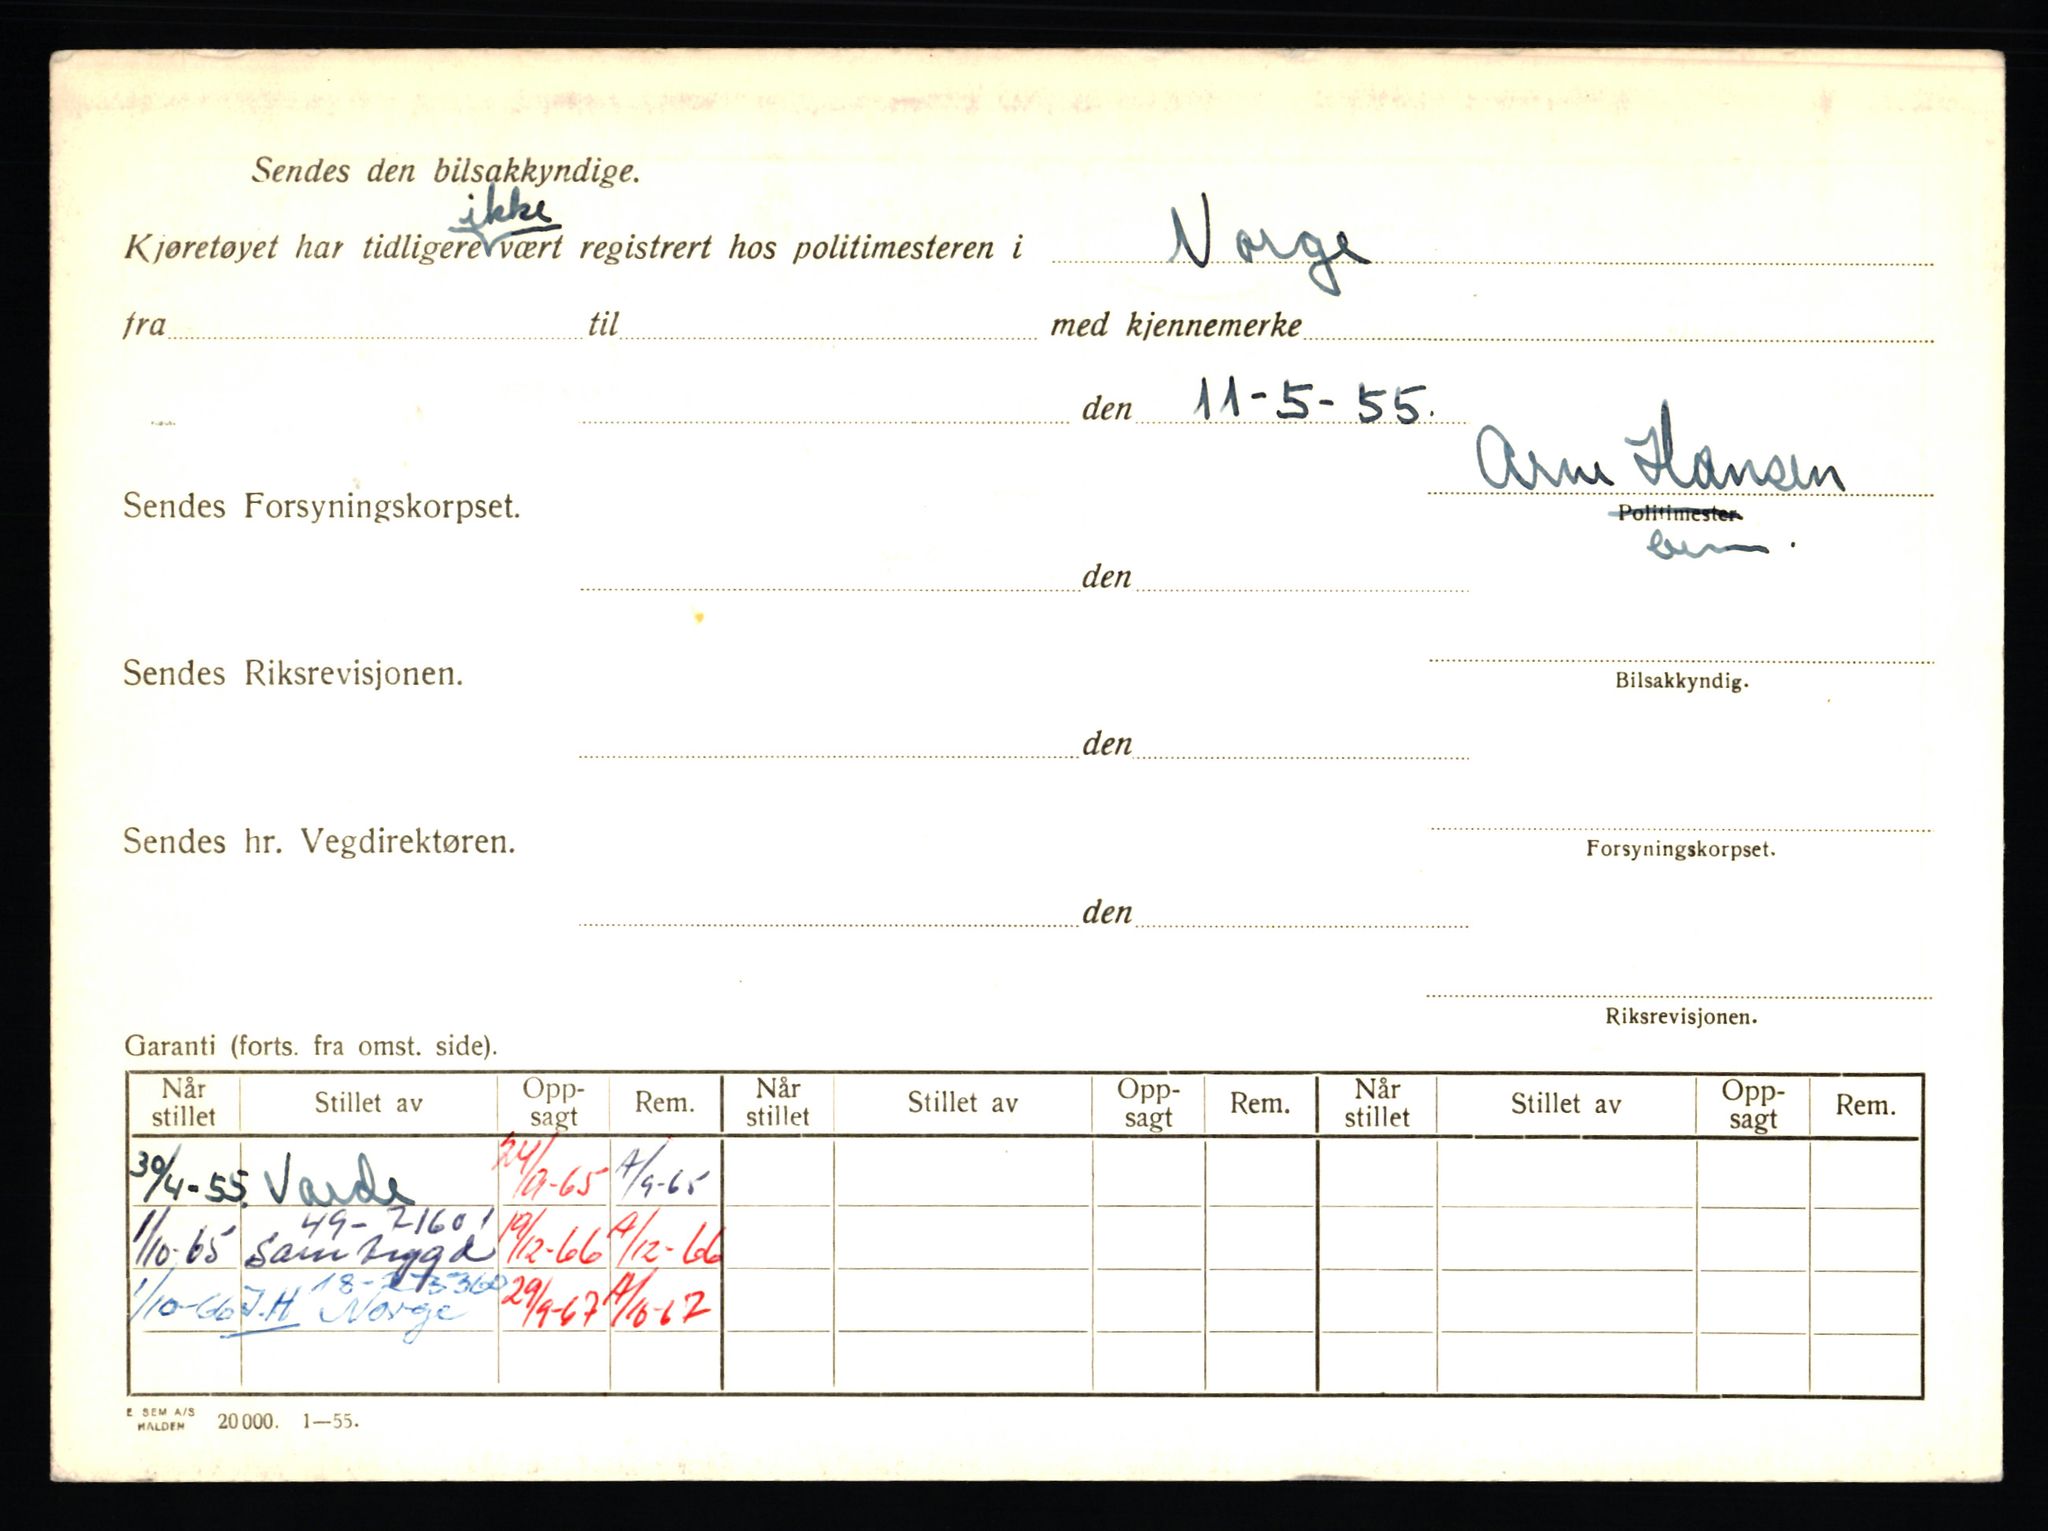 Sendes den bilsakkyndige.
ikke
Kjøretøyet har tidligere vært registrert hos politimesteren i Norge
fra til med kjennemerke
den 11-5-55.
Arne Hansen
Sendes Forsyningskorpset.
Politimester
den
Sendes Riksrevisjonen.
Bilsakkyndig.
den
Sendes hr. Vegdirektøren.
Forsyningskorpset.
den
Riksrevisjonen.
Garanti (forts. fra omst. side).
Når stillet Stillet av Opp-sagt Rem. Når stillet Stillet av Opp-sagt Rem. Når stillet Stillet av Opp-sagt Rem.
30/4-55. Varde 24/9-65 A/9-65
49-21601
1/10-65 Sambygd 19/12-66 A/12-66
1/10-66 J.H Norge 29/9-67 A/10-67
E SEM A/S
HALDEN 20000. 1—55.